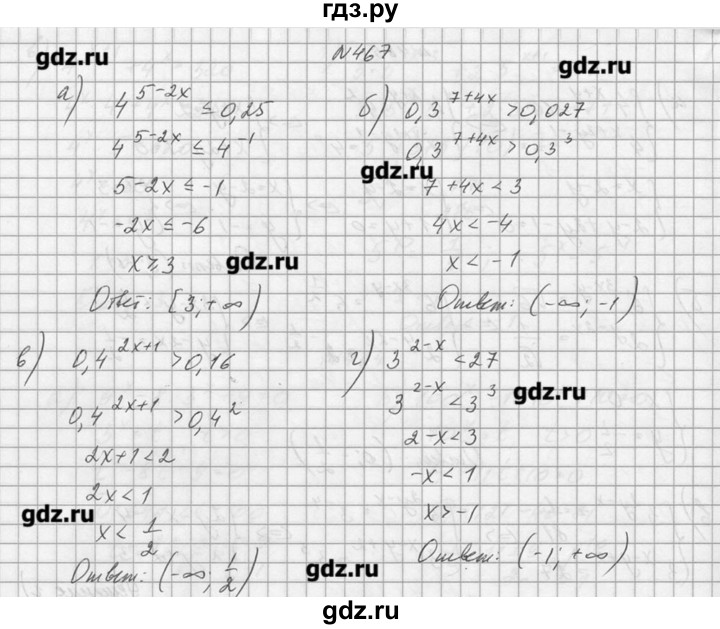 гдз.ру
№467
gdz.ru
gdz.ru
а) 4^(5-2x) ≤ 0,25
4^(5-2x) ≤ 4^(-1)
5-2x ≤ -1
-2x ≤ -6
x ≥ 3
gdz.ru
Ответ: [3; +∞)
б) 0,3^(7+4x) > 0,027
0,3^(7+4x) > 0,3^3
gdz.ru
7+4x < 3
4x < -4
x < -1
Ответ: (-∞; -1)
в) 0,4^(2x+1) > 0,16
0,4^(2x+1) > 0,4^2
2x+1 < 2
2x < 1
gdz.ru
x < 1/2
Ответ: (-∞; 1/2)
г) 3^(2-x) < 27
3^(2-x) < 3^3
gdz.ru
2-x < 3
-x < 1
x > -1
Ответ: (-1; +∞)
gdz.ru
gdz.ru